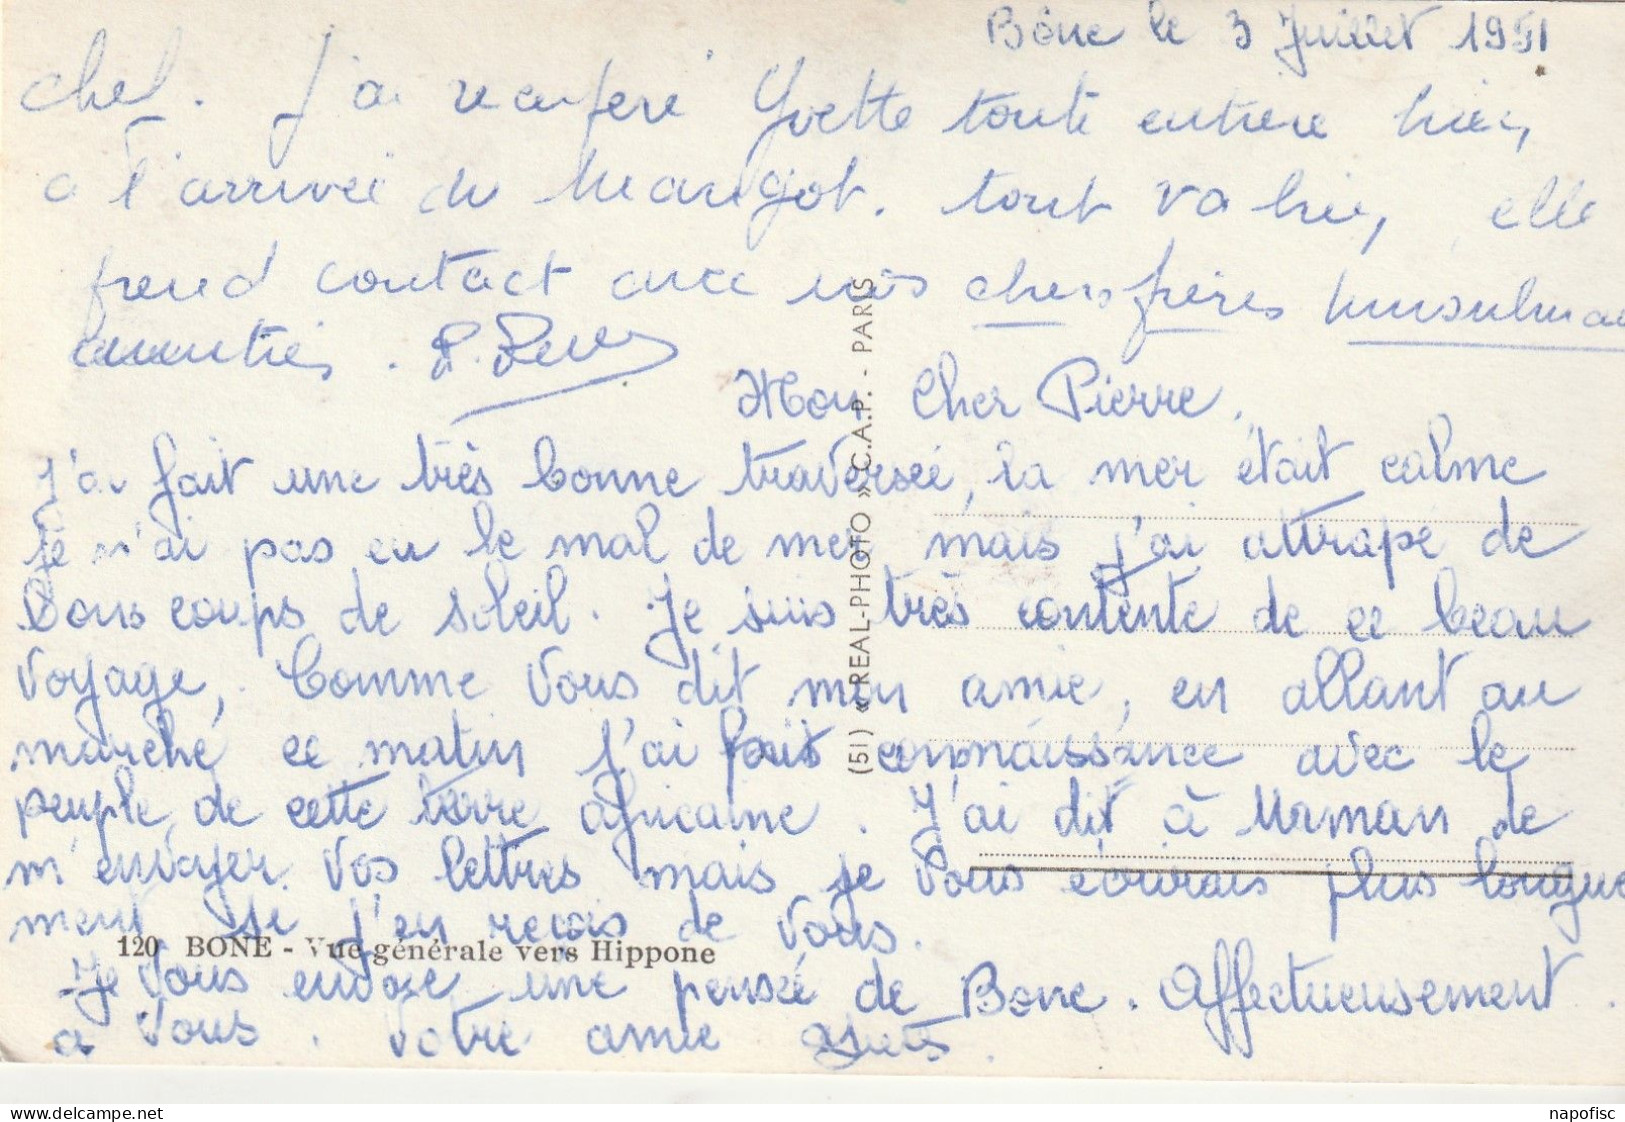 Bône le 3 Juillet 1951
chef. J'ai récupéré Yvette toute entière hier,
a l'arrivée du Margot. tout va bien, elle
prend contact avec nos chers frères musulman
. P.
Mon Cher Pierre,
J'ai fait une très bonne traversée, la mer était calme
je n'ai pas eu le mal de mer mais j'ai attrapé de
bons coups de soleil. Je suis très contente de ce beau
voyage, Comme vous dit mon amie, en allant au
marché ce matin j'ai fait connaissance avec le
peuple de cette terre africaine. J'ai dit à Maman de
m'envoyer vos lettres mais je vous écrirais plus longue
ment si j'en reçois de vous.
Je vous envoie une pensée de Bone. Affectueusement
à vous. Votre amie
(51) « REAL-PHOTO » C.A.P. - PARIS
120 BONE - Vue générale vers Hippone
delcampe.net
napofisc